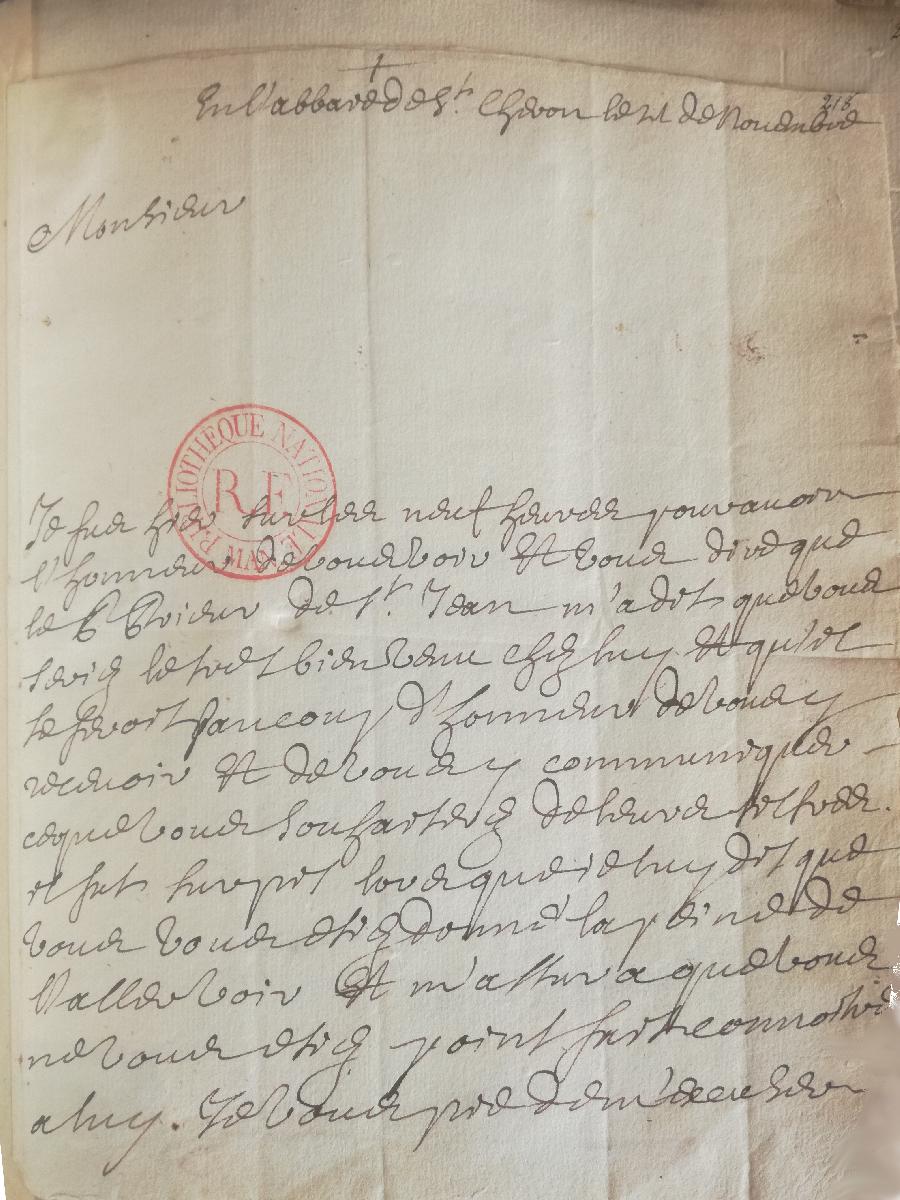 +
En l'abbaie de St. Cheron le 21 de Novembre
216
Monsieur
BIBLIOTHEQUE NATIONALE MANUSCRITS
R F
Je fus hier sur les neuf heures pour avoir
l'honneur de vous voir Et vous dire que
le P Prieur de St. Jean m'a dit que vous
seriez le tres bien venu chez luy Et qu'il
se feroit baucoup d'honneur de vous y
recevoir Et de vous y communiquer
ce que vous souhaiterez de leurs tiltres.
il fut surpris lors que ie luy dit que
vous vous estiez donné la peine de
l'aller voir Et m'assura que vous
ne vous estiez point fait connoitre
a luy. Je vous prie de m'excuser